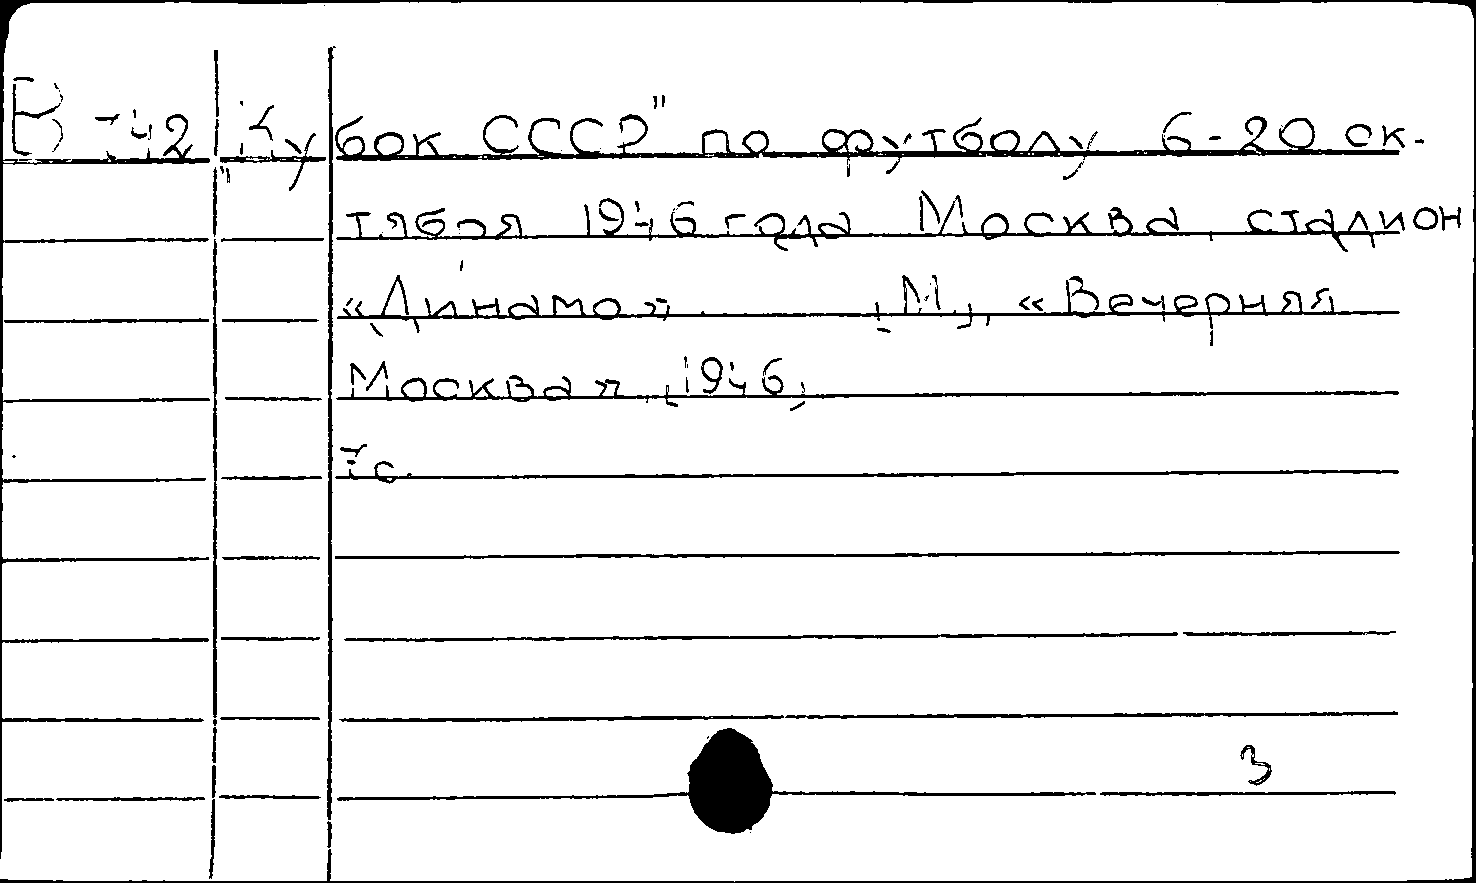 В 742 „Кубок СССР" по футболу 6-20 ок-
тября 1946 года Москва, стадион
«Динамо». [М.], «Вечерняя
Москва», [1946]
7 с.
3